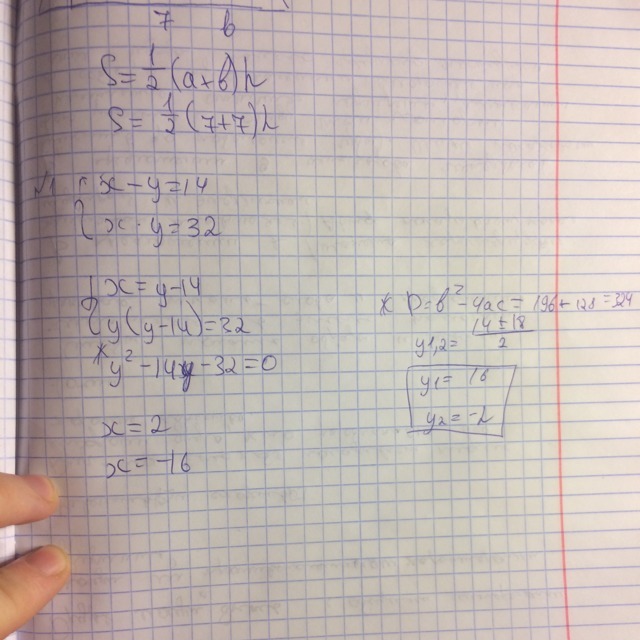 7 в
S = 1/2 (a+b)h
S = 1/2 (7+7)h
№1 { x - y = 14
{ x · y = 32
{ x = y - 14
{ y(y-14) = 32
* y² - 14y - 32 = 0
x = 2
x = -16
* D = b² - 4ac = 196 + 128 = 324
y1,2 = (14 ± 18)/2
y1 = 16
y2 = -2